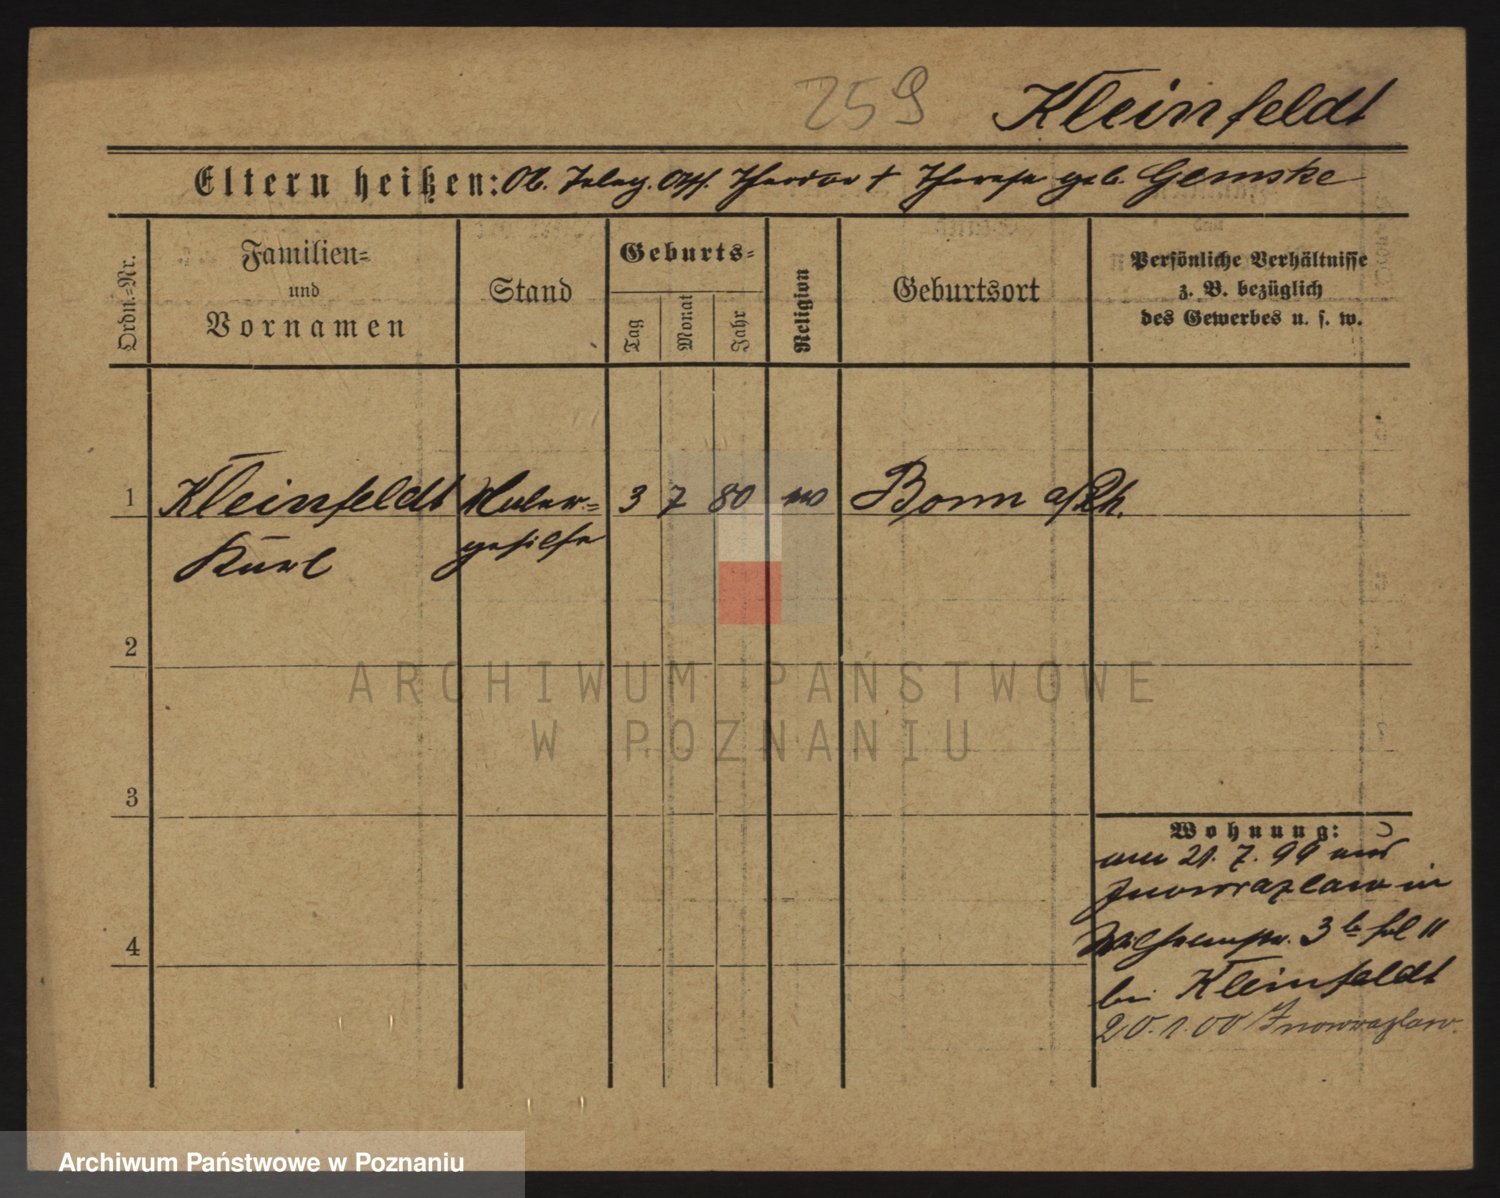 259 Kleinfeldt
Eltern heißen: Ob. Teleg. Ass. Theodor † Therese geb. Gemske
Ordn.-Nr.
Familien-
und
Vornamen
Stand
Geburts-
Tag
Monat
Jahr
Religion
Geburtsort
Persönliche Verhältnisse
z. B. bezüglich
des Gewerbes u. s. w.
1 Kleinfeldt Maler- 3 7 80 Bonn a/Rh.
Karl gehilfe
2
3
4
Wohnung:
am 21. 7. 99 aus
Inowrazlaw in
Wilhelmstr. 3 II
bei Kleinfeldt
20.1.00 Inowrazlaw.
ARCHIWUM PAŃSTWOWE
W POZNANIU
Archiwum Państwowe w Poznaniu